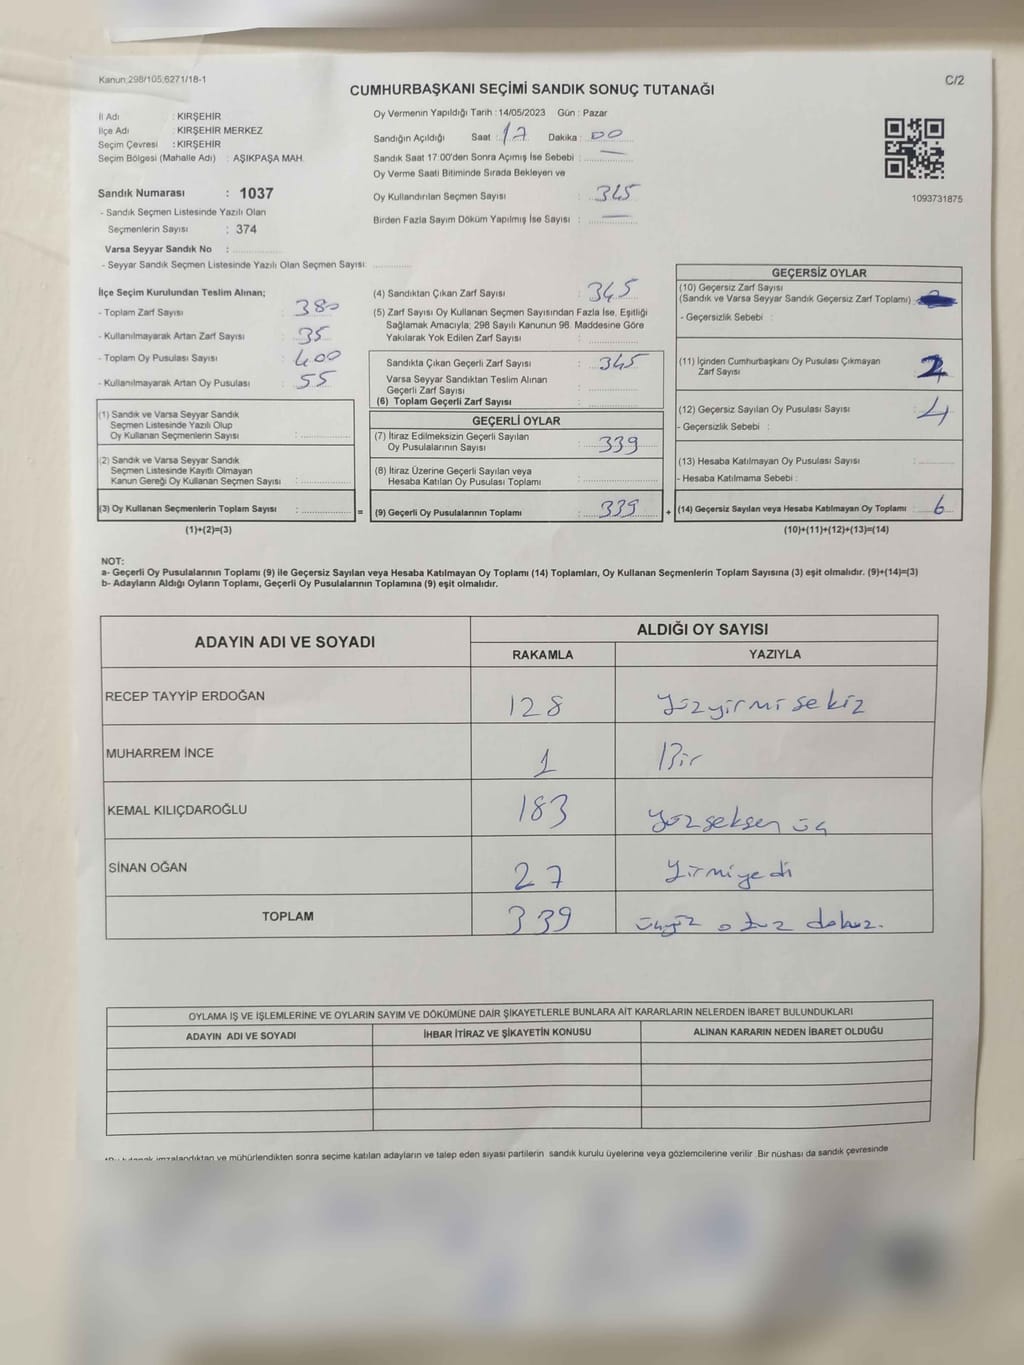 Kanun 298/105,6271/18-1
C/2
CUMHURBAŞKANI SEÇİMİ SANDIK SONUÇ TUTANAĞI
İl Adı : KIRŞEHİR
İlçe Adı : KIRŞEHİR MERKEZ
Seçim Çevresi : KIRŞEHİR
Seçim Bölgesi (Mahalle Adı) : AŞIKPAŞA MAH.
Sandık Numarası : 1037
- Sandık Seçmen Listesinde Yazılı Olan
Seçmenlerin Sayısı : 374
Varsa Seyyar Sandık No :
- Seyyar Sandık Seçmen Listesinde Yazılı Olan Seçmen Sayısı:
Oy Vermenin Yapıldığı Tarih : 14/05/2023 Gün : Pazar
Sandığın Açıldığı Saat : 17 Dakika : 00
Sandık Saat 17:00'den Sonra Açımış İse Sebebi : —
Oy Verme Saati Bitiminde Sırada Bekleyen ve
Oy Kullandırılan Seçmen Sayısı : 345
Birden Fazla Sayım Döküm Yapılmış İse Sayısı : —
1093731875
İlçe Seçim Kurulundan Teslim Alınan;
- Toplam Zarf Sayısı : 380
- Kullanılmayarak Artan Zarf Sayısı : 35
- Toplam Oy Pusulası Sayısı : 400
- Kullanılmayarak Artan Oy Pusulası : 55
(1) Sandık ve Varsa Seyyar Sandık
Seçmen Listesinde Yazılı Olup
Oy Kullanan Seçmenlerin Sayısı :
(2) Sandık ve Varsa Seyyar Sandık
Seçmen Listesinde Kayıtlı Olmayan
Kanun Gereği Oy Kullanan Seçmen Sayısı :
(3) Oy Kullanan Seçmenlerin Toplam Sayısı : =
(1)+(2)=(3)
(4) Sandıktan Çıkan Zarf Sayısı : 345
(5) Zarf Sayısı Oy Kullanan Seçmen Sayısından Fazla İse, Eşitliği
Sağlamak Amacıyla; 298 Sayılı Kanunun 98. Maddesine Göre
Yakılarak Yok Edilen Zarf Sayısı :
Sandıkta Çıkan Geçerli Zarf Sayısı : 345
Varsa Seyyar Sandıktan Teslim Alınan
Geçerli Zarf Sayısı :
(6) Toplam Geçerli Zarf Sayısı :
GEÇERLİ OYLAR
(7) İtiraz Edilmeksizin Geçerli Sayılan
Oy Pusulalarının Sayısı : 339
(8) İtiraz Üzerine Geçerli Sayılan veya
Hesaba Katılan Oy Pusulası Toplamı :
(9) Geçerli Oy Pusulalarının Toplamı : 339 +
GEÇERSİZ OYLAR
(10) Geçersiz Zarf Sayısı
(Sandık ve Varsa Seyyar Sandık Geçersiz Zarf Toplamı) :
- Geçersizlik Sebebi :
(11) İçinden Cumhurbaşkanı Oy Pusulası Çıkmayan
Zarf Sayısı : 2
(12) Geçersiz Sayılan Oy Pusulası Sayısı : 4
- Geçersizlik Sebebi :
(13) Hesaba Katılmayan Oy Pusulası Sayısı :
- Hesaba Katılmama Sebebi :
(14) Geçersiz Sayılan veya Hesaba Katılmayan Oy Toplamı : 6
(10)+(11)+(12)+(13)=(14)
NOT:
a- Geçerli Oy Pusulalarının Toplamı (9) ile Geçersiz Sayılan veya Hesaba Katılmayan Oy Toplamı (14) Toplamları, Oy Kullanan Seçmenlerin Toplam Sayısına (3) eşit olmalıdır. (9)+(14)=(3)
b- Adayların Aldığı Oyların Toplamı, Geçerli Oy Pusulalarının Toplamına (9) eşit olmalıdır.
ADAYIN ADI VE SOYADI
ALDIĞI OY SAYISI
RAKAMLA YAZIYLA
RECEP TAYYİP ERDOĞAN 128 Yüzyirmi sekiz
MUHARREM İNCE 1 Bir
KEMAL KILIÇDAROĞLU 183 Yüzseksen üç
SİNAN OĞAN 27 Yirmiyedi
TOPLAM 339 üçyüz otuz dokuz.
OYLAMA İŞ VE İŞLEMLERİNE VE OYLARIN SAYIM VE DÖKÜMÜNE DAİR ŞİKAYETLERLE BUNLARA AİT KARARLARIN NELERDEN İBARET BULUNDUKLARI
ADAYIN ADI VE SOYADI İHBAR İTİRAZ VE ŞİKAYETİN KONUSU ALINAN KARARIN NEDEN İBARET OLDUĞU
imzalandıktan ve mühürlendikten sonra seçime katılan adayların ve talep eden siyasi partilerin sandık kurulu üyelerine veya gözlemcilerine verilir Bir nüshası da sandık çevresinde